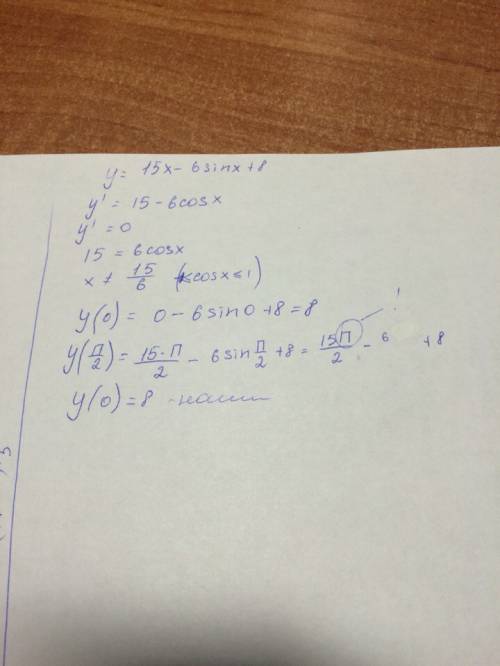 y = 15x - 6sinx + 8
y' = 15 - 6cosx
y' = 0
15 = 6cosx
x ≠ 15/6 ( ≤cosx≤1)
y(0) = 0 - 6sin0 + 8 = 8
y(П/2) = 15·П/2 - 6sin П/2 + 8 = 15П/2 - 6 + 8
!
y(0) = 8 наим